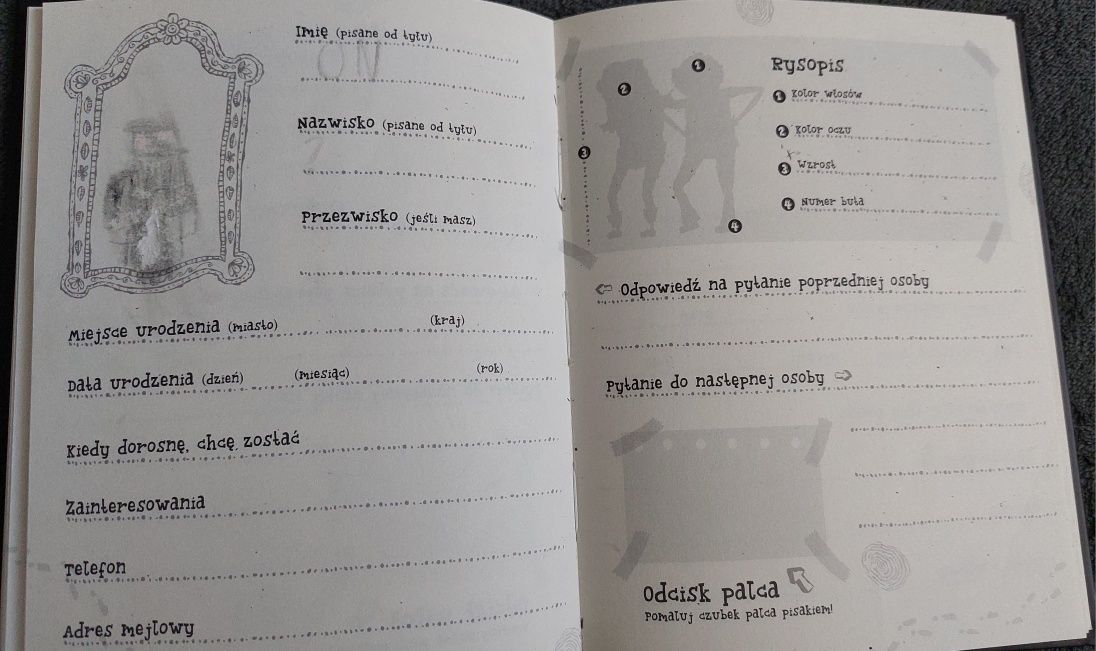 Imię (pisane od tyłu)
Nazwisko (pisane od tyłu)
Przezwisko (jeśli masz)
Miejsce urodzenia (miasto) (kraj)
Data urodzenia (dzień) (miesiąc) (rok)
Kiedy dorosnę, chcę zostać
Zainteresowania
Telefon
Adres mejlowy
1
2
3
4
Rysopis
1 Kolor włosów
2 Kolor oczu
3 Wzrost
4 Numer buta
Odpowiedź na pytanie poprzedniej osoby
Pytanie do następnej osoby
Odcisk palca
Pomaluj czubek palca pisakiem!